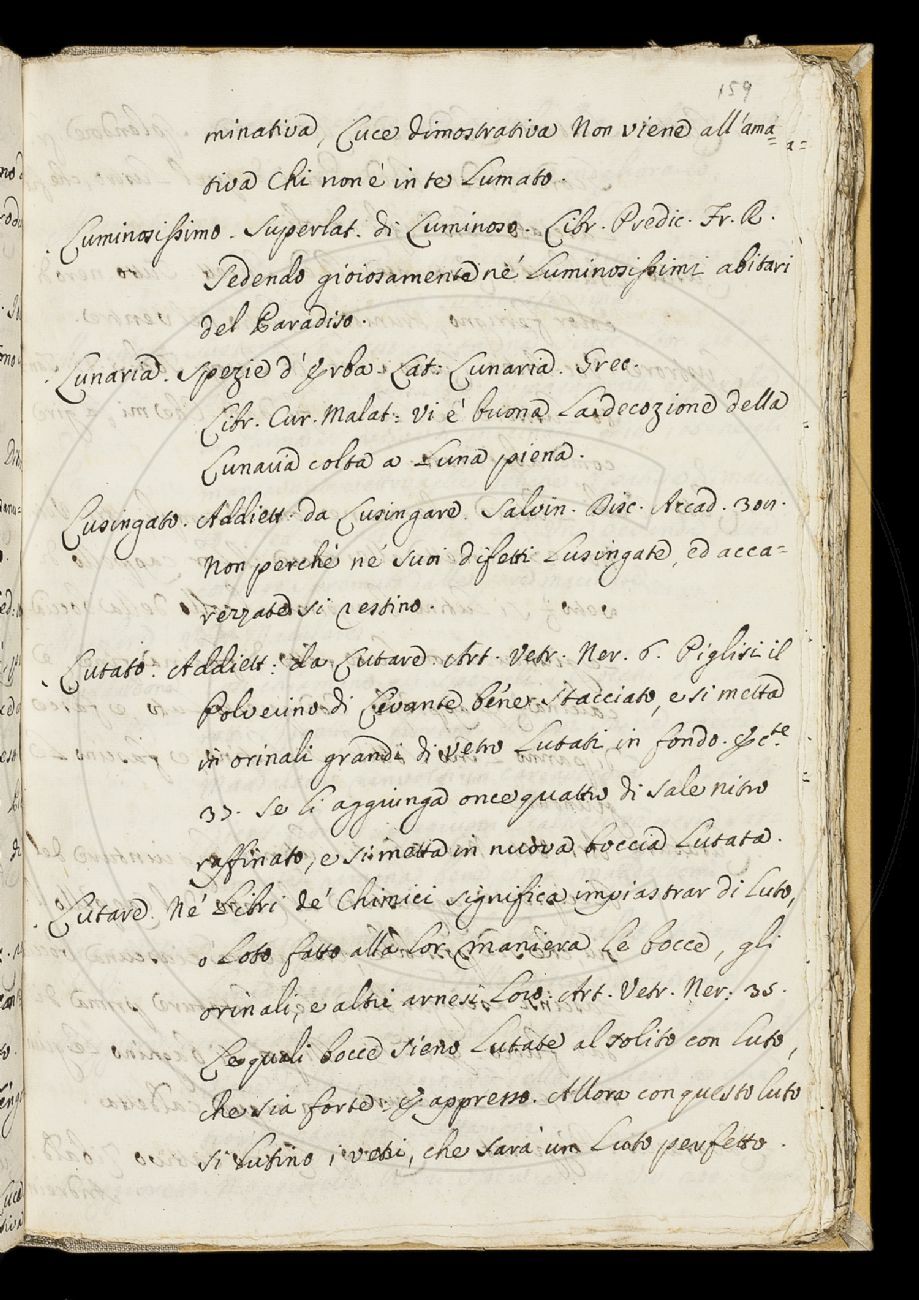 159
minativa, Luce dimostrativa Non viene all'ama=
tiva Chi non é in te Lumato.
Luminosissimo. Superlat. di Luminoso. Libr. Predic. Fr. R.
Sedendo gioiosamente né Luminosissimi abitari
del Paradiso.
Lunaria. Spezie d'Erba. Lat: Lunaria. Grec.
Libr. Cur. Malat: Vi é buona La decozione della
Lunaria colta a Luna piena.
Lusingato. Addiett. da Lusingare. Salvin. Disc. Accad.
Non perché né suoi difetti Lusingate, ed acca=
rezzate si restino.
Lutato. Addiett: da Lutare. Art. Vetr. Ner. 6. Piglisi il
Polverino di Levante béne stacciato, e si metta
in orinali grandi di vetro Lutati in fondo. E cte.
37. Se li aggiunga once quattro di Sale nitro
raffinato, e si metta in nuova boccia Lutata.
Lutare. Né Libri dé Chimici significa impiastrar di Luto,
o Loto fatto alla Lor maniera Le bocce, gli
orinali, e altri arnesi Loro. Art. Vetr. Ner: 35.
Le quali bocce sieno Lutate al solito con Luto,
che sia forte. E appresso. Allora con questo luto
si lutino i vetri, che sará un Luto perfetto.